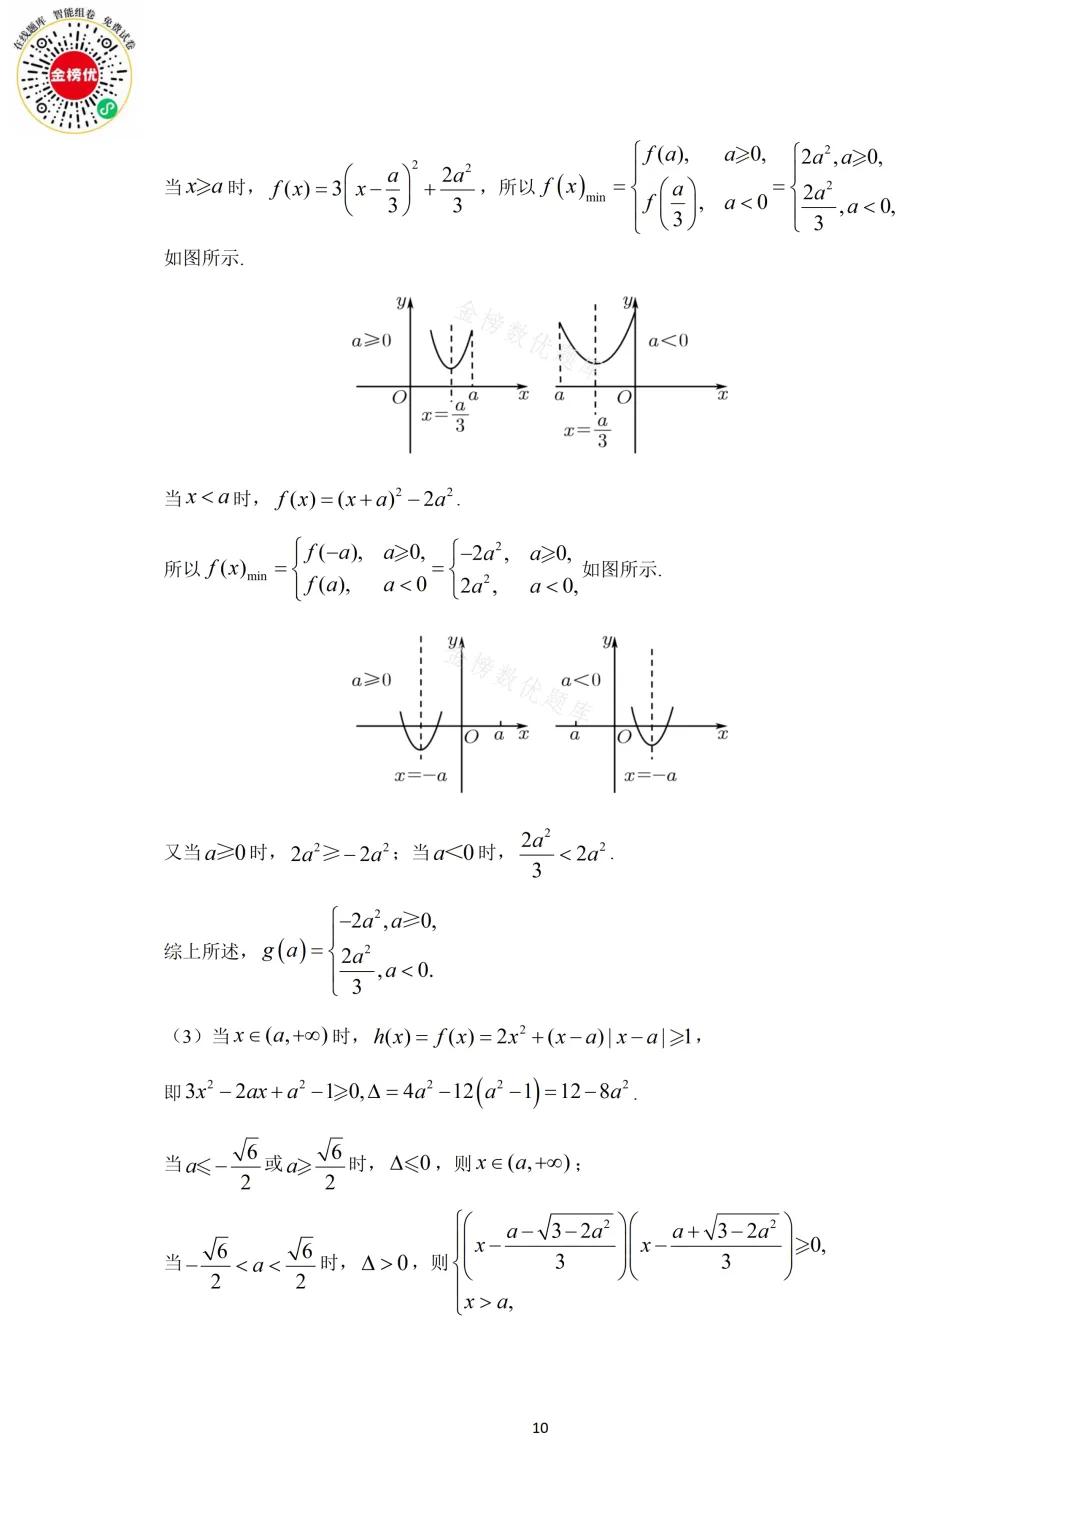 在线题库 智能组卷 免费试卷
金榜优
当x⩾a时，f(x)=3(x−a/3)²+2a²/3，所以f(x)min={f(a), a⩾0, f(a/3), a<0={2a²,a⩾0, 2a²/3,a<0,
如图所示.
y y
a⩾0 a<0
O a x a O x
x=a/3 x=a/3
金榜数优题库
当x<a时，f(x)=(x+a)²−2a².
所以f(x)min={f(−a), a⩾0, f(a), a<0={−2a², a⩾0, 2a², a<0,如图所示.
y y
金榜数优题库
a⩾0 a<0
O a x a O x
x=−a x=−a
又当a≥0时，2a²≥−2a²；当a<0时，2a²/3<2a².
综上所述，g(a)={−2a²,a≥0, 2a²/3,a<0.
（3）当x∈(a,+∞)时，h(x)=f(x)=2x²+(x−a)|x−a|⩾1，
即3x²−2ax+a²−1⩾0,Δ=4a²−12(a²−1)=12−8a².
当a⩽−√6/2或a⩾√6/2时，Δ⩽0，则x∈(a,+∞)；
当−√6/2<a<√6/2时，Δ>0，则{(x−(a−√(3−2a²))/3)(x−(a+√(3−2a²))/3)⩾0, x>a,
10